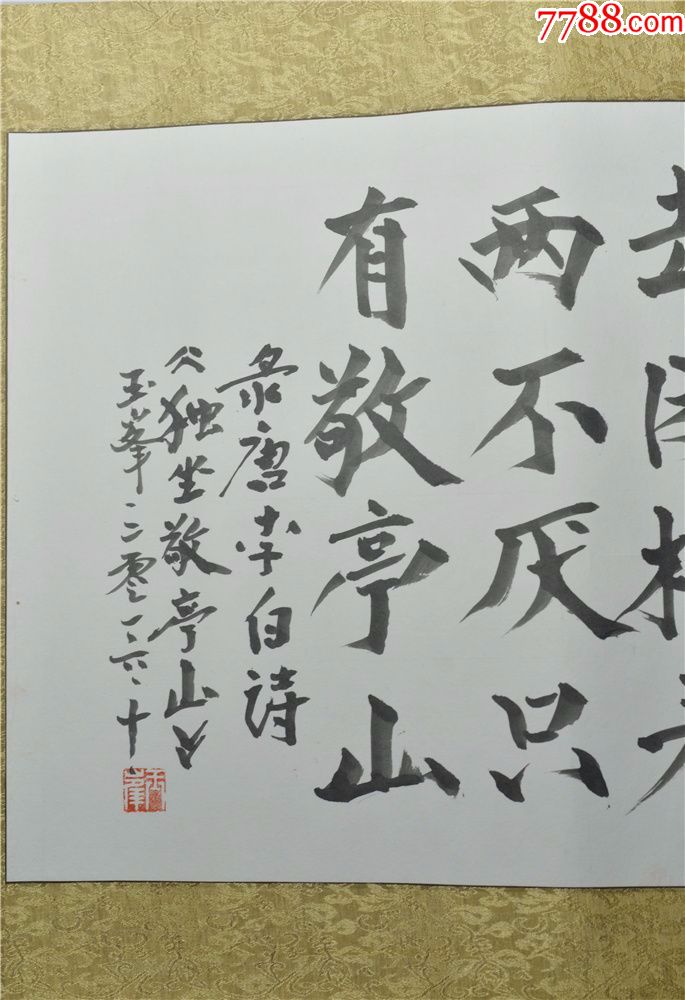 7788.com
两不厌只
有敬亭山
录唐李白詩
《独坐敬亭山》
玉峯二零一六、十